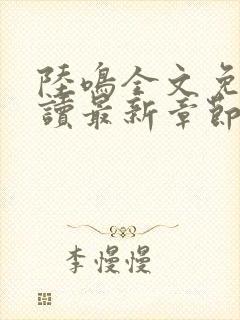 陸鳴全文免
讀最新章節
李慢慢